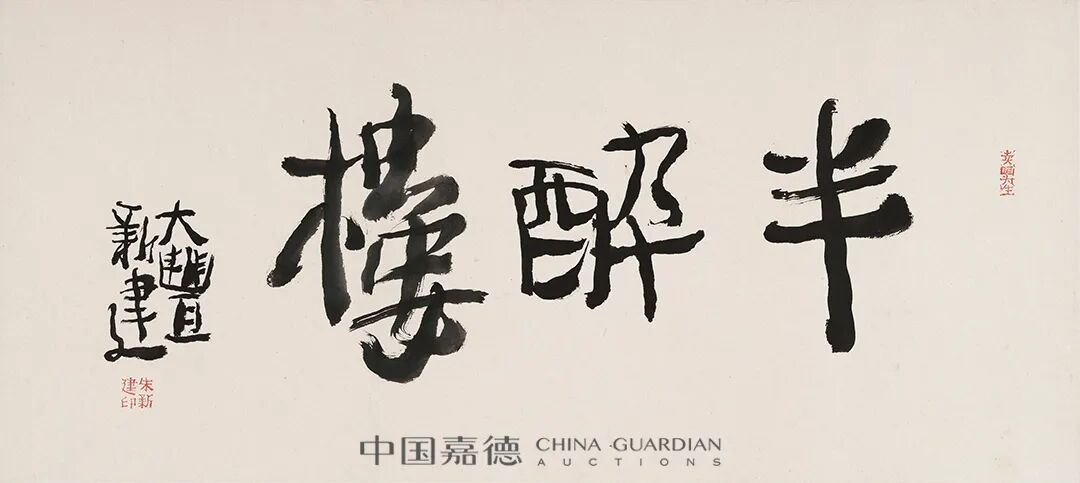 半醉樓
大豐
新建
朱新
建印
中国嘉德 CHINA GUARDIAN
AUCTIONS